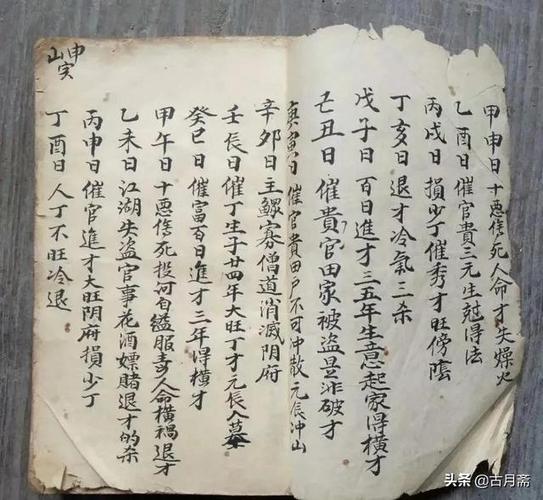 甲申日十悪惨死人命才失燥火
乙酉日催官貴三元生尅得法
丙戌日損少丁催秀才旺傍蔭
丁亥日退才冷氣三杀
戊子日百日進才三五年生意起家得横才
己丑日催貴官田家被盗是非破才
庚寅日催官貴田戸不可冲散元辰冲山
辛卯日主鰥寡僧道消滅阴府
壬辰日催丁生子廿四年大旺丁才元辰入墓
癸巳日催富百日進才三年得横才
甲午日十悪惨死投河自缢服毒人命横禍退才
乙未日江湖失盗官事花酒嫖賭退才的杀
丙申日催官進才大旺阴府損少丁
丁酉日人丁不旺冷退
申实
山
头条 @古月斋